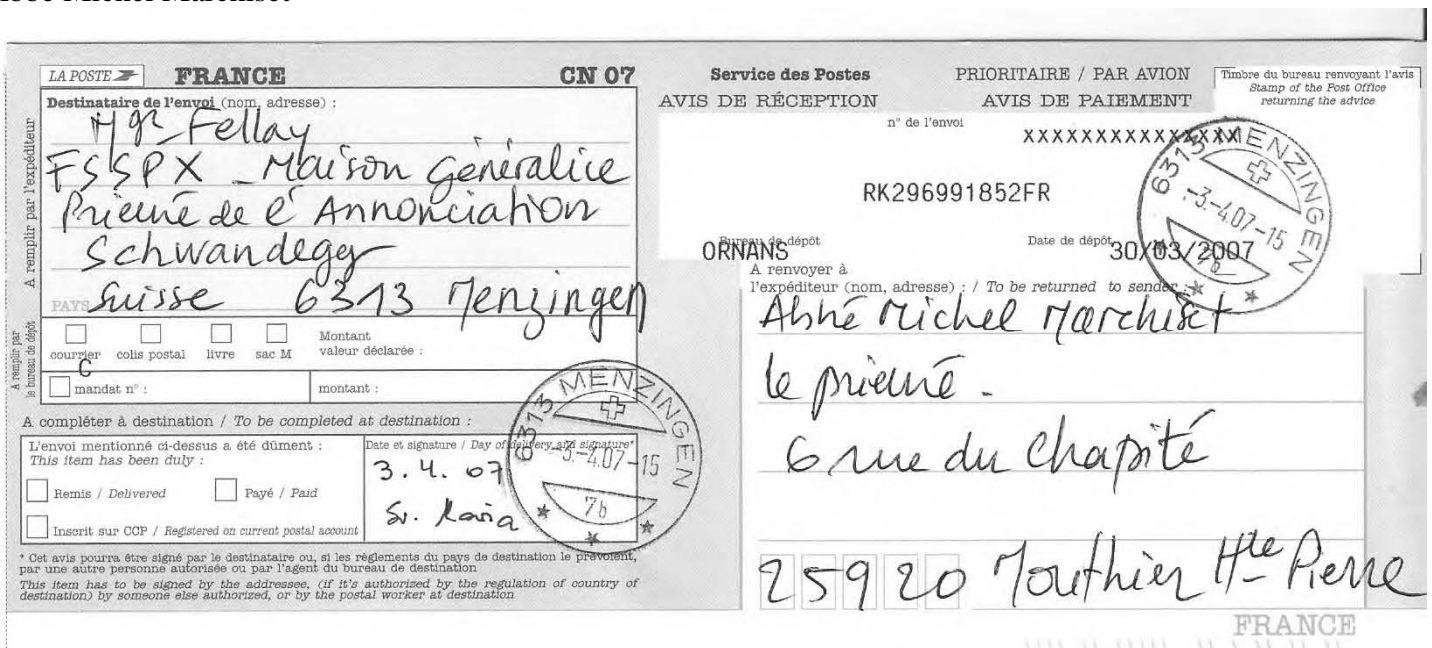 Abbé Michel Marchiset
LA POSTE FRANCE CN 07
Destinataire de l'envoi (nom, adresse) :
Mgr Fellay
FSSPX _ Maison Généralice
Prieuré de l'Annonciation
Schwandegg
PAYS Suisse 6313 Menzingen
A remplir par l'expéditeur
A remplir par le bureau de dépôt
courrier colis postal livre sac M
Montant valeur déclarée :
mandat n° : montant :
A compléter à destination / To be completed at destination :
L'envoi mentionné ci-dessus a été dûment :
This item has been duly :
Remis / Delivered Payé / Paid
Inscrit sur CCP / Registered on current postal account
Date et signature / Day of delivery and signature*
3. 4. 07
Sr. Maria
6313 MENZINGEN
-3.-4.07-15
7b
* Cet avis pourra être signé par le destinataire ou, si les règlements du pays de destination le prévoient,
par une autre personne autorisée ou par l'agent du bureau de destination
This item has to be signed by the addressee, (if it's authorized by the regulation of country of
destination) by someone else authorized, or by the postal worker at destination
Service des Postes PRIORITAIRE / PAR AVION
AVIS DE RÉCEPTION AVIS DE PAIEMENT
Timbre du bureau renvoyant l'avis
Stamp of the Post Office
returning the advice
n° de l'envoi
XXXXXXXXXXXXXXXX
RK296991852FR
6313 MENZINGEN
-3.-4.07-15
7b
Bureau de dépôt Date de dépôt
ORNANS 30/03/2007
A renvoyer à
l'expéditeur (nom, adresse) : / To be returned to sender :
Abbé Michel Marchiset
le prieuré -
6 rue du Chapité
25920 Mouthier Hte Pierre
FRANCE